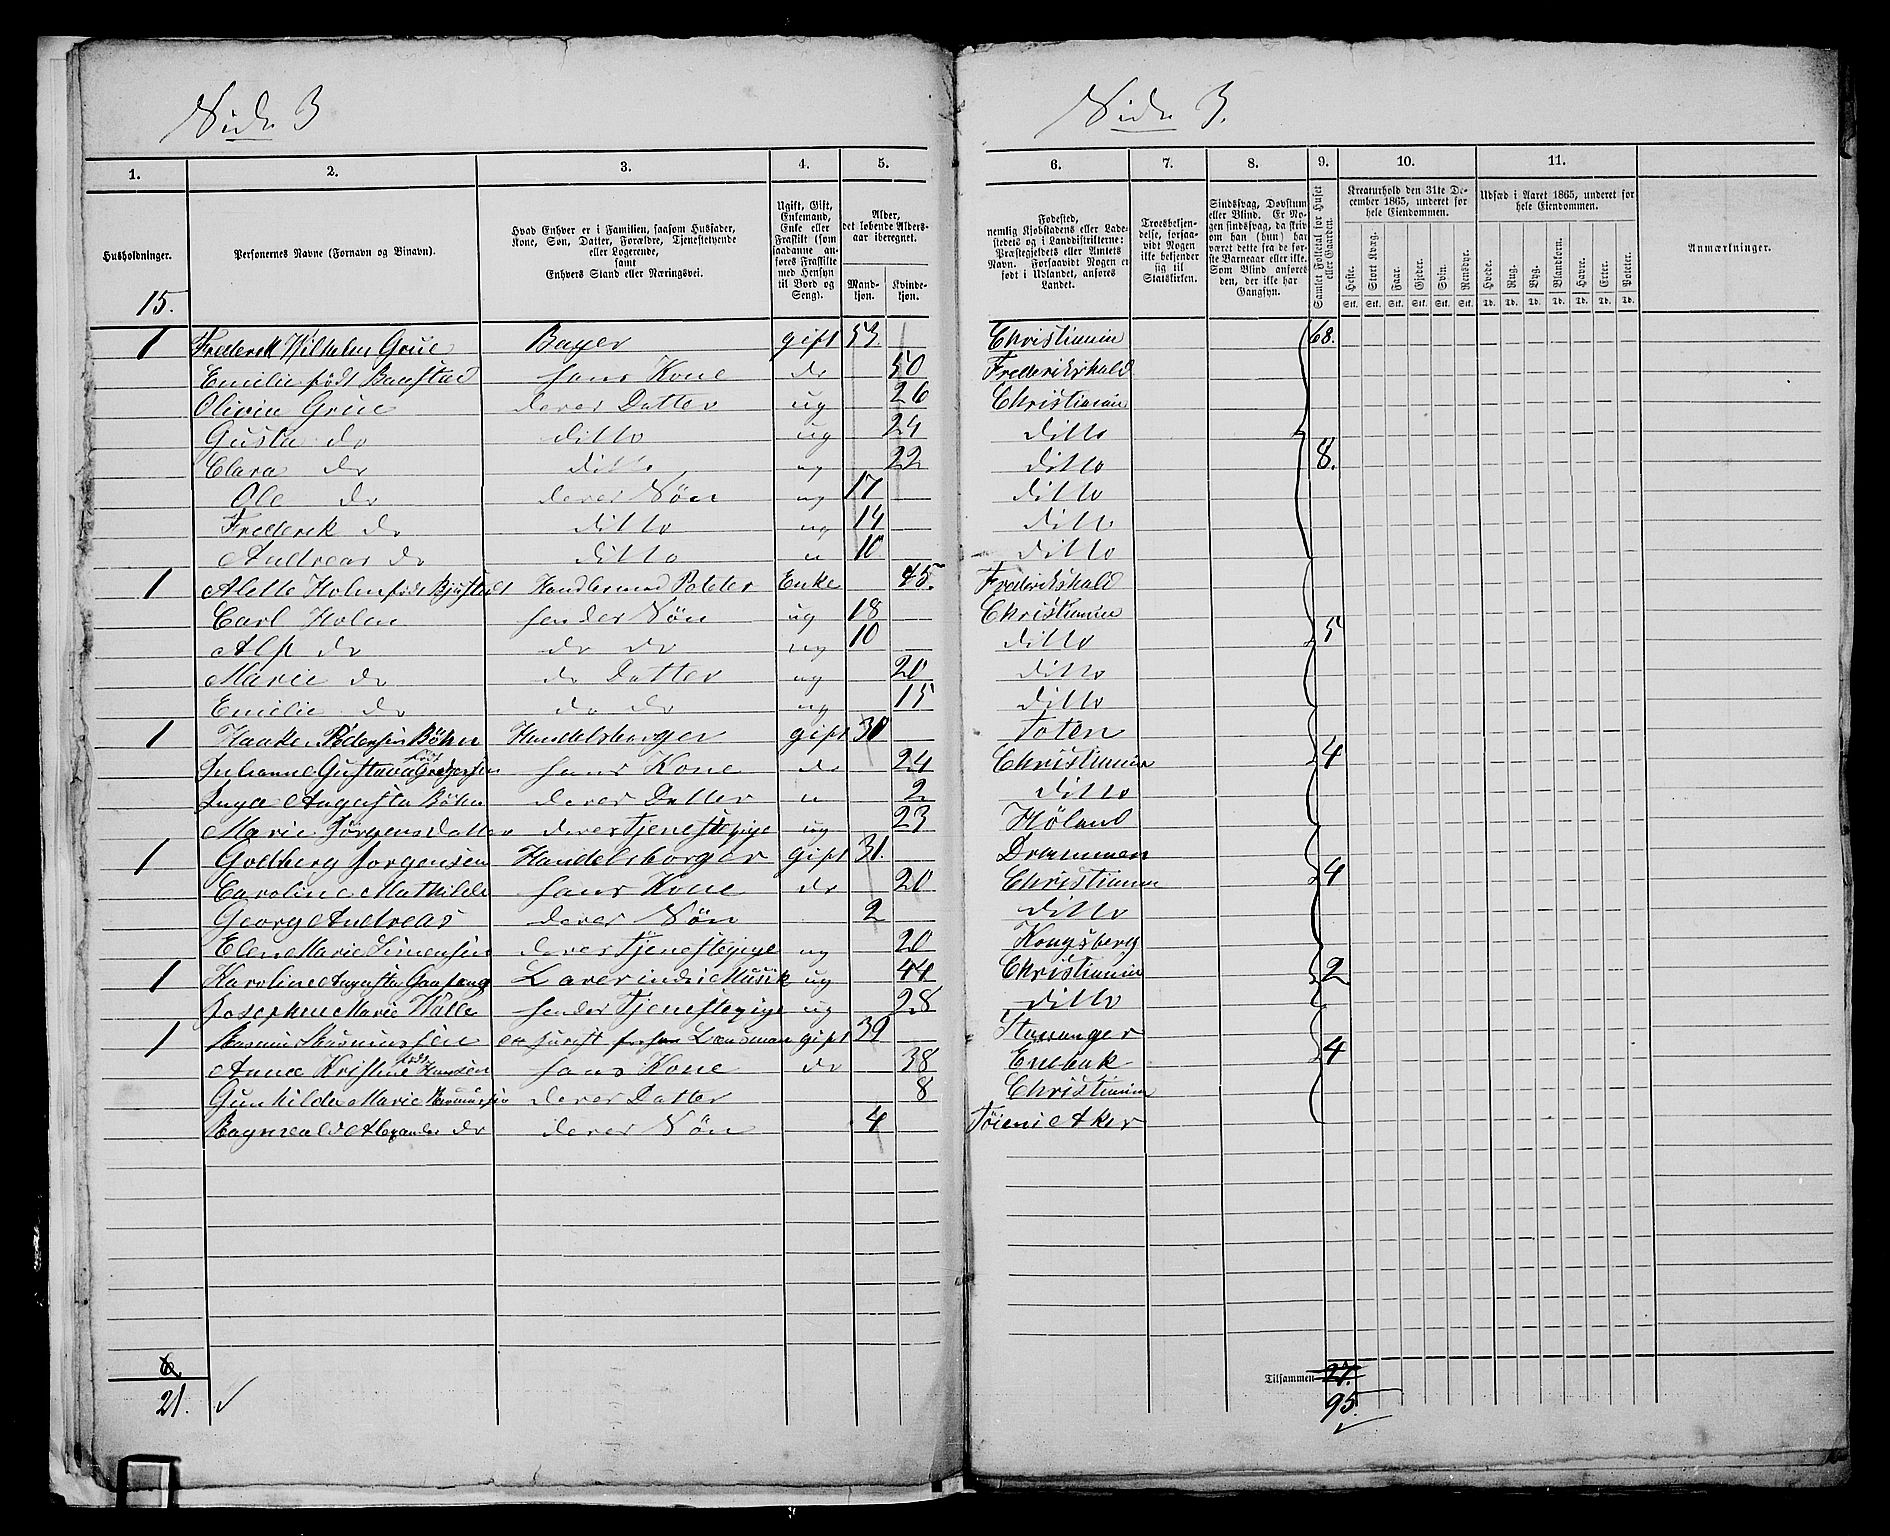 Side 3
Side 3.
1. 2. 3. 4. 5.
Husholdninger.
Personernes Navne (Fornavn og Binavn).
Hvad Enhver er i Familien, saasom Husfader, Kone, Søn, Datter, Forældre, Tjenestetyende eller Logerende, samt Enhvers Stand eller Næringsvei.
Ugift, Gift, Enkemand, Enke eller Fraskilt (som saadanne anføres Fraskilte med Hensyn til Bord og Seng).
Alder, det løbende Alders-aar iberegnet.
Mand-kjøn. Kvinde-kjøn.
6. 7. 8. 9. 10. 11.
Fødested, nemlig Kjøbstadens eller Ladestedets og i Landdistrikterne: Præstegjeldets eller Amtets Navn. Forsaavidt Nogen er født i Udlandet, anføres Landet.
Troesbekjendelse, forsaavidt Nogen ikke bekjender sig til Statskirken.
Sindssvag, Døvstum eller Blind. Er Nogen sindssvag, da skrives om han (hun) har været dette fra de første Barneaar eller ikke. Som Blind anføres den, der ikke har Gangsyn.
Samlet Folketal for Huset eller Gaarden.
Kreaturhold den 31te December 1865, underet for hele Eiendommen.
Heste. Stort Kvæg. Faar. Gjeder. Svin. Rensdyr.
Stk. Stk. Stk. Stk. Stk. Stk.
Udsæd i Aaret 1865, underet for hele Eiendommen.
Hvede. Rug. Byg. Blandkorn. Havre. Erter. Poteter.
Td. Td. Td. Td. Td. Td. Td.
Anmærkninger.
15.
1 Frederik Wilhelm Grüe Bager gift 53 Christiania 68.
Emilie født Baastad hans Kone do 50 Frederikshald
Olivia Grüe deres Datter ug 26 Christiania
Gusta do ditto ug 24 ditto
Clara do ditto ug 22 ditto 8.
Ole do deres Søn ug 17 ditto
Frederik do ditto ug 14 ditto
Andreas do ditto u 10 ditto
1 Alette Holm født Enke 45. Frederikshald
Carl Holm hendes Søn ug 18 Christiania
Alf do do do ug 10 ditto 5
Marie do do Datter ug 20 ditto
Emilie do do do ug 15 ditto
1 Haake Pedersen Bøhn Handelsborger gift 30 Toten
Julianne Gustava født hans Kone do 24 Christiania 4
Inga Augusta Bøhn deres Datter u 2 ditto
Marie Jørgensdatter deres Tjenestepige ug 23 Høland
1 Godberg Jorgensen Handelsborger gift 31. Drammen
Caroline Mathilde hans Kone do 20 Christiania 4
Georg Andreas deres Søn 2 ditto
Elen Marie Simensen deres Tjenestepige ug 20 Kongsberg
1 Karoline Augusta Laererinde i Musik ug 44 Christiania 2
Josephine Marie Walle hendes Tjenestepige ug 28 ditto
1 Rasmus Rasmussen gift 39 Stavanger
Anne Kristine født Hansen hans Kone do 38 Enebak 4
Gunhilda Marie Rasmussen deres Datter 8 Christiania
Ragnvald Alexander do deres Søn 4 Tøien i Aker
6.
21.
Tilsammen 27.
95.